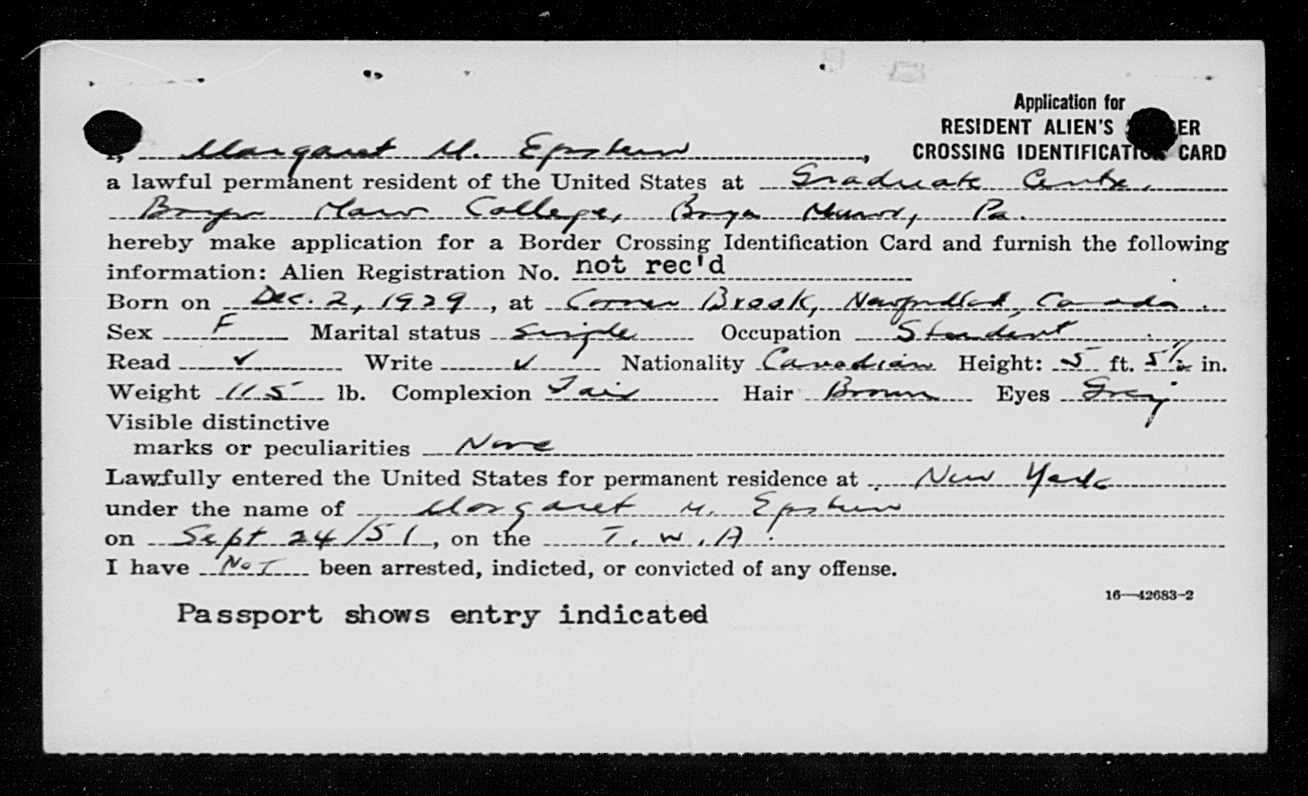 Application for
RESIDENT ALIEN'S ER
CROSSING IDENTIFICATION CARD
I, Margaret M. Epstein,
a lawful permanent resident of the United States at Graduate Centre,
Bryn Mawr College, Bryn Mawr, Pa.
hereby make application for a Border Crossing Identification Card and furnish the following
information: Alien Registration No. not rec'd
Born on Dec. 2, 1929, at Corner Brook, Newfoundland, Canada.
Sex F Marital status Single Occupation Student
Read ✓ Write ✓ Nationality Canadian Height: 5 ft. 5 1/2 in.
Weight 115 lb. Complexion Fair Hair Brown Eyes Grey
Visible distinctive
marks or peculiarities None
Lawfully entered the United States for permanent residence at New York
under the name of Margaret M. Epstein
on Sept 24/51, on the T.W.A.
I have NOT been arrested, indicted, or convicted of any offense.
16—42683-2
Passport shows entry indicated